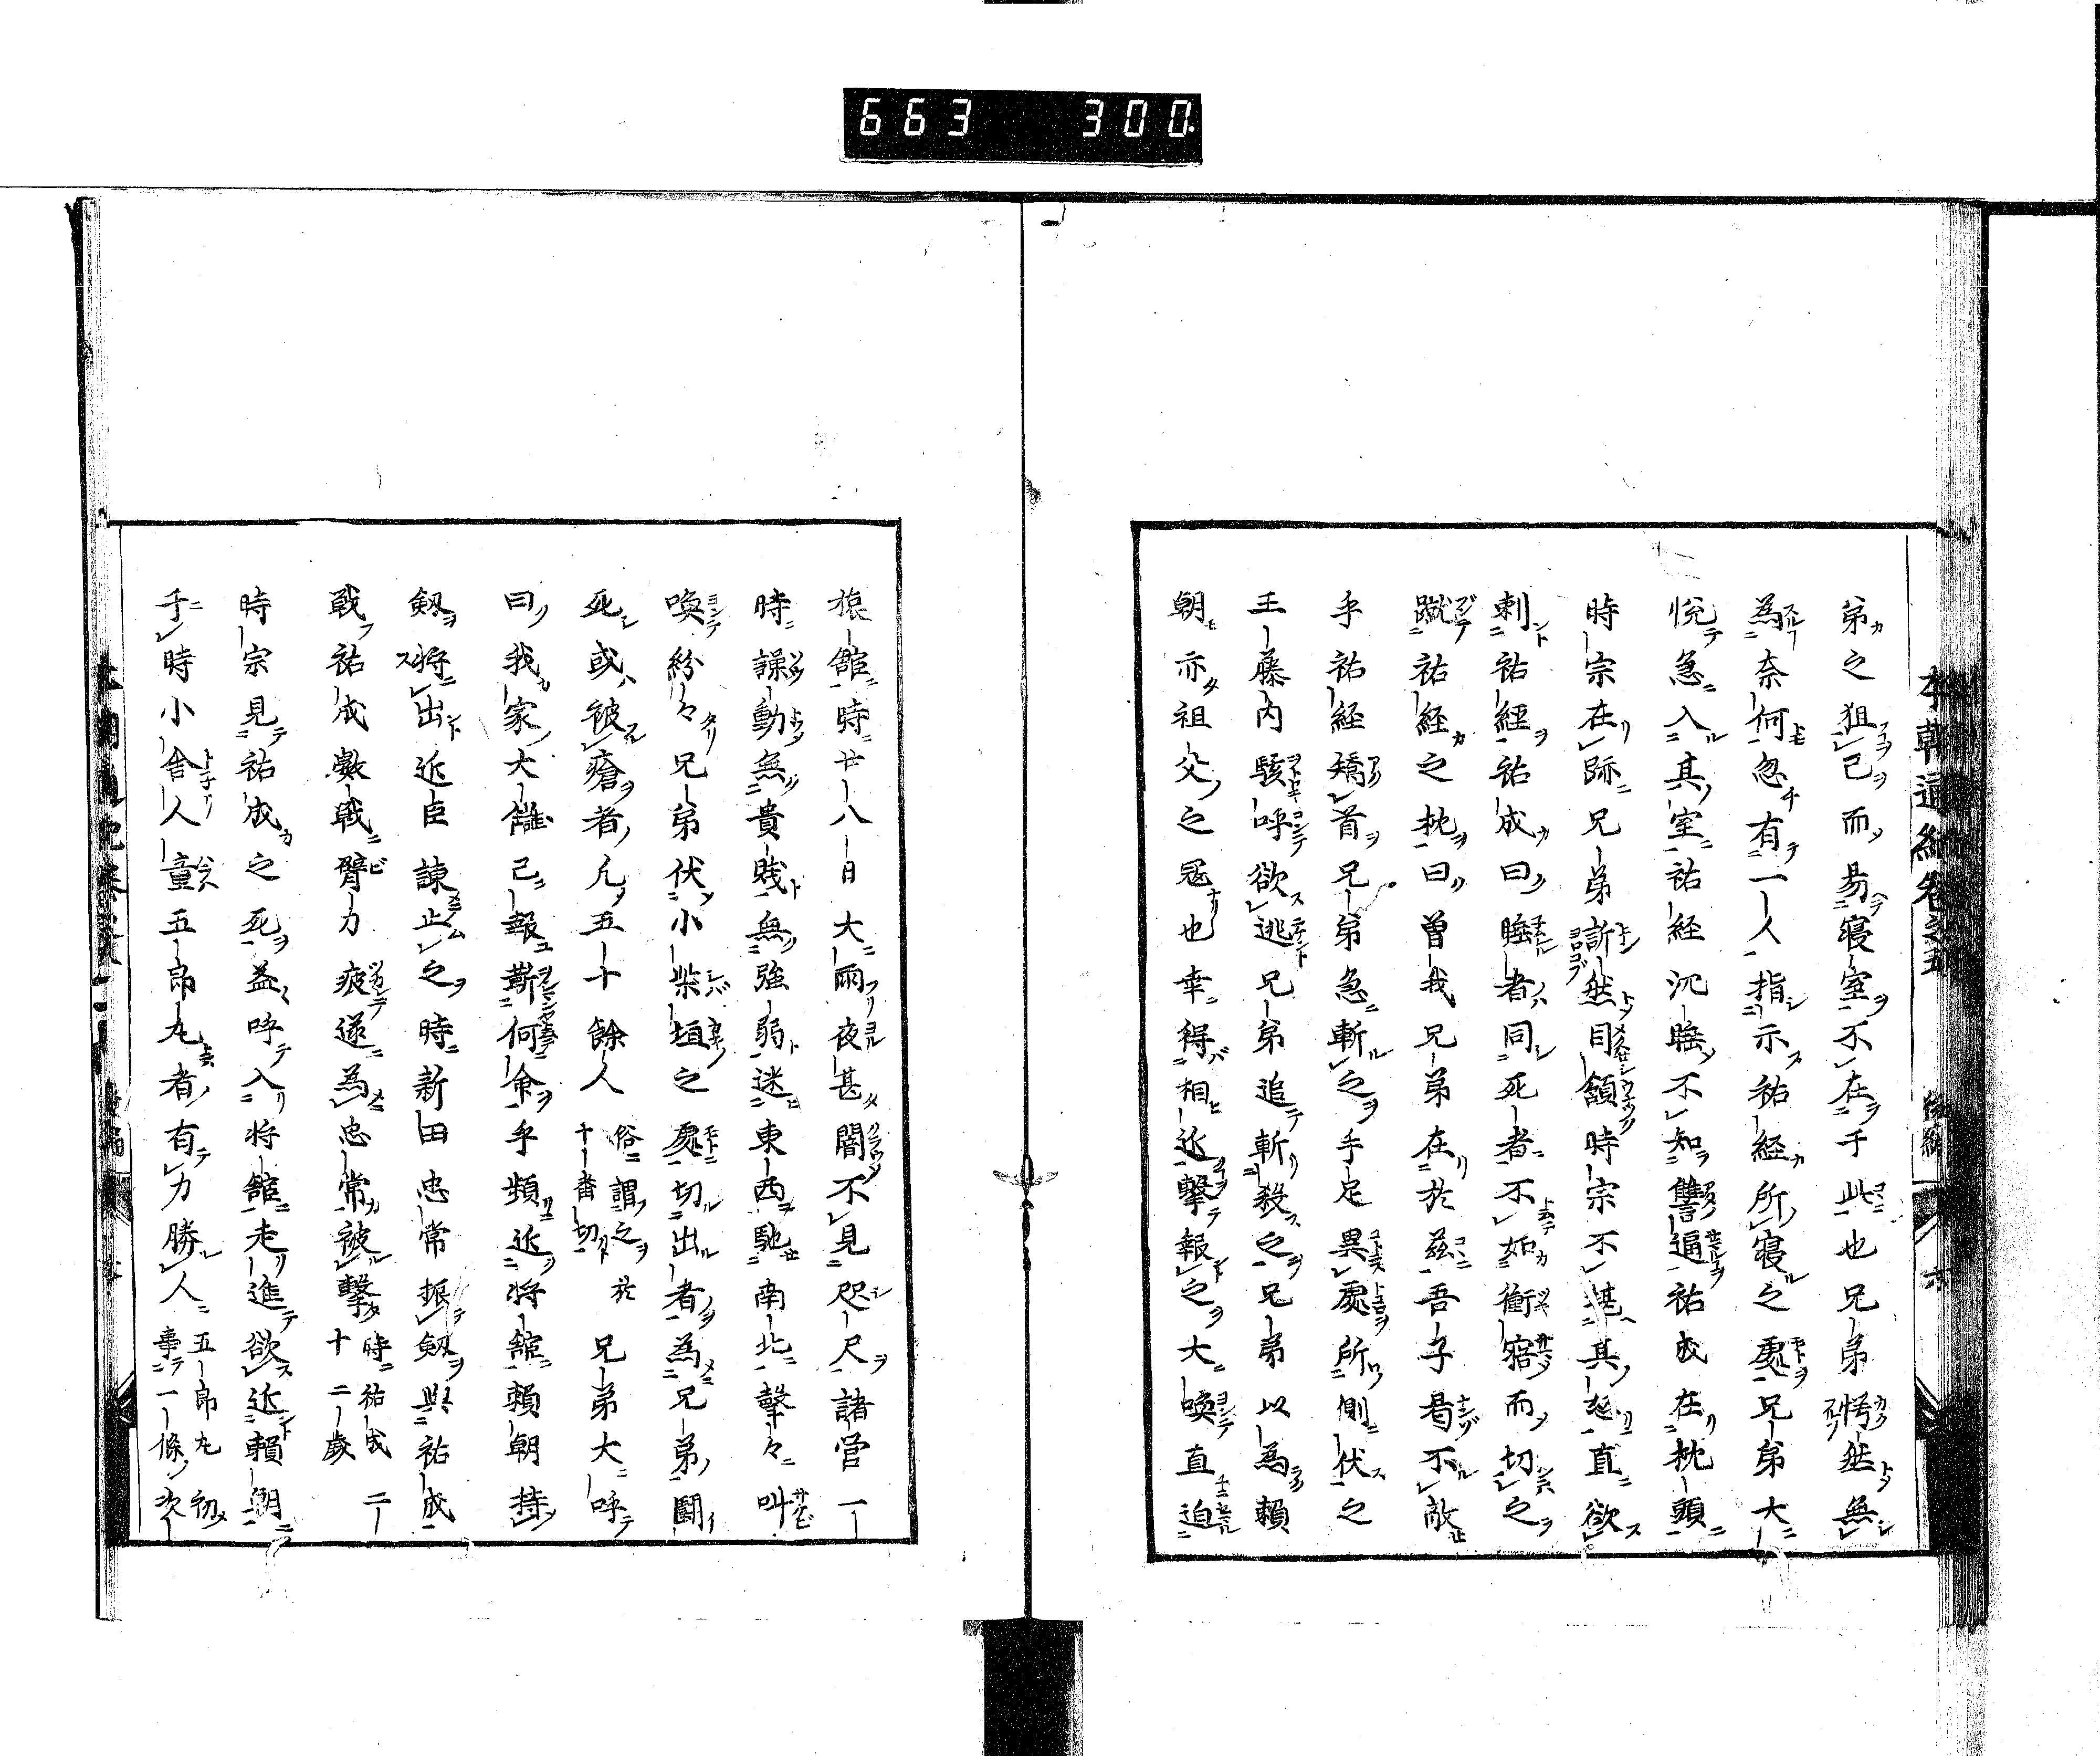 663 300
本朝通紀卷之五 後編 六
弟之狙己而易寢室不在于此也兄弟愕然無
為奈何忽有一人指示祐経所寢之處兄弟大
悅急入其室祐経沉睡不知讐逼祐成在枕頭
時宗在跡兄弟訢然目頷時宗不堪其直欲
刺祐經祐成曰睡者同死者不如衝寤而切之
蹴祐経之枕曰曽我兄弟在於茲吾子曷不敵
乎祐経矯首兄弟急斬之手足異處所側伏之
王藤内駭呼欲逃兄弟追斬殺之兄弟以為賴
朝亦祖父之冦也幸得相近擊報之大喚直迫
旅館時廿八日大雨夜甚闇不見咫尺諸営一
時譟動無貴賎無強弱迷東西馳南北聲々叫
喚紛々兄弟伏小柴垣之處切出者為兄弟鬪
死或被瘡者凢五十餘人 俗謂之十番切 於 兄弟大呼
曰我家大讎已報蕲何命乎頻近将館賴朝持
劔将出近臣諌止之時新田忠常振劔與祐成
戰祐成數戰臂力疲遂為忠常被擊 時祐成二十二歲
時宗見祐成之死益呼入将館走進欲近賴朝
于時小舎人童五郎丸者有力勝人 五郎丸初事一條次